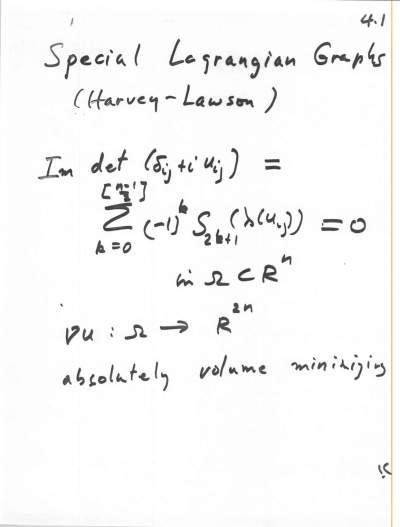 4.1
Special Lagrangian Graphs
(Harvey-Lawson)
Im det (δij + i uij) =
[n-1/2]
∑ (-1)^k S_2k+1 (λ(uij)) = 0
k=0
in Ω ⊂ R^n
∇u : Ω → R^2n
absolutely volume minimizing